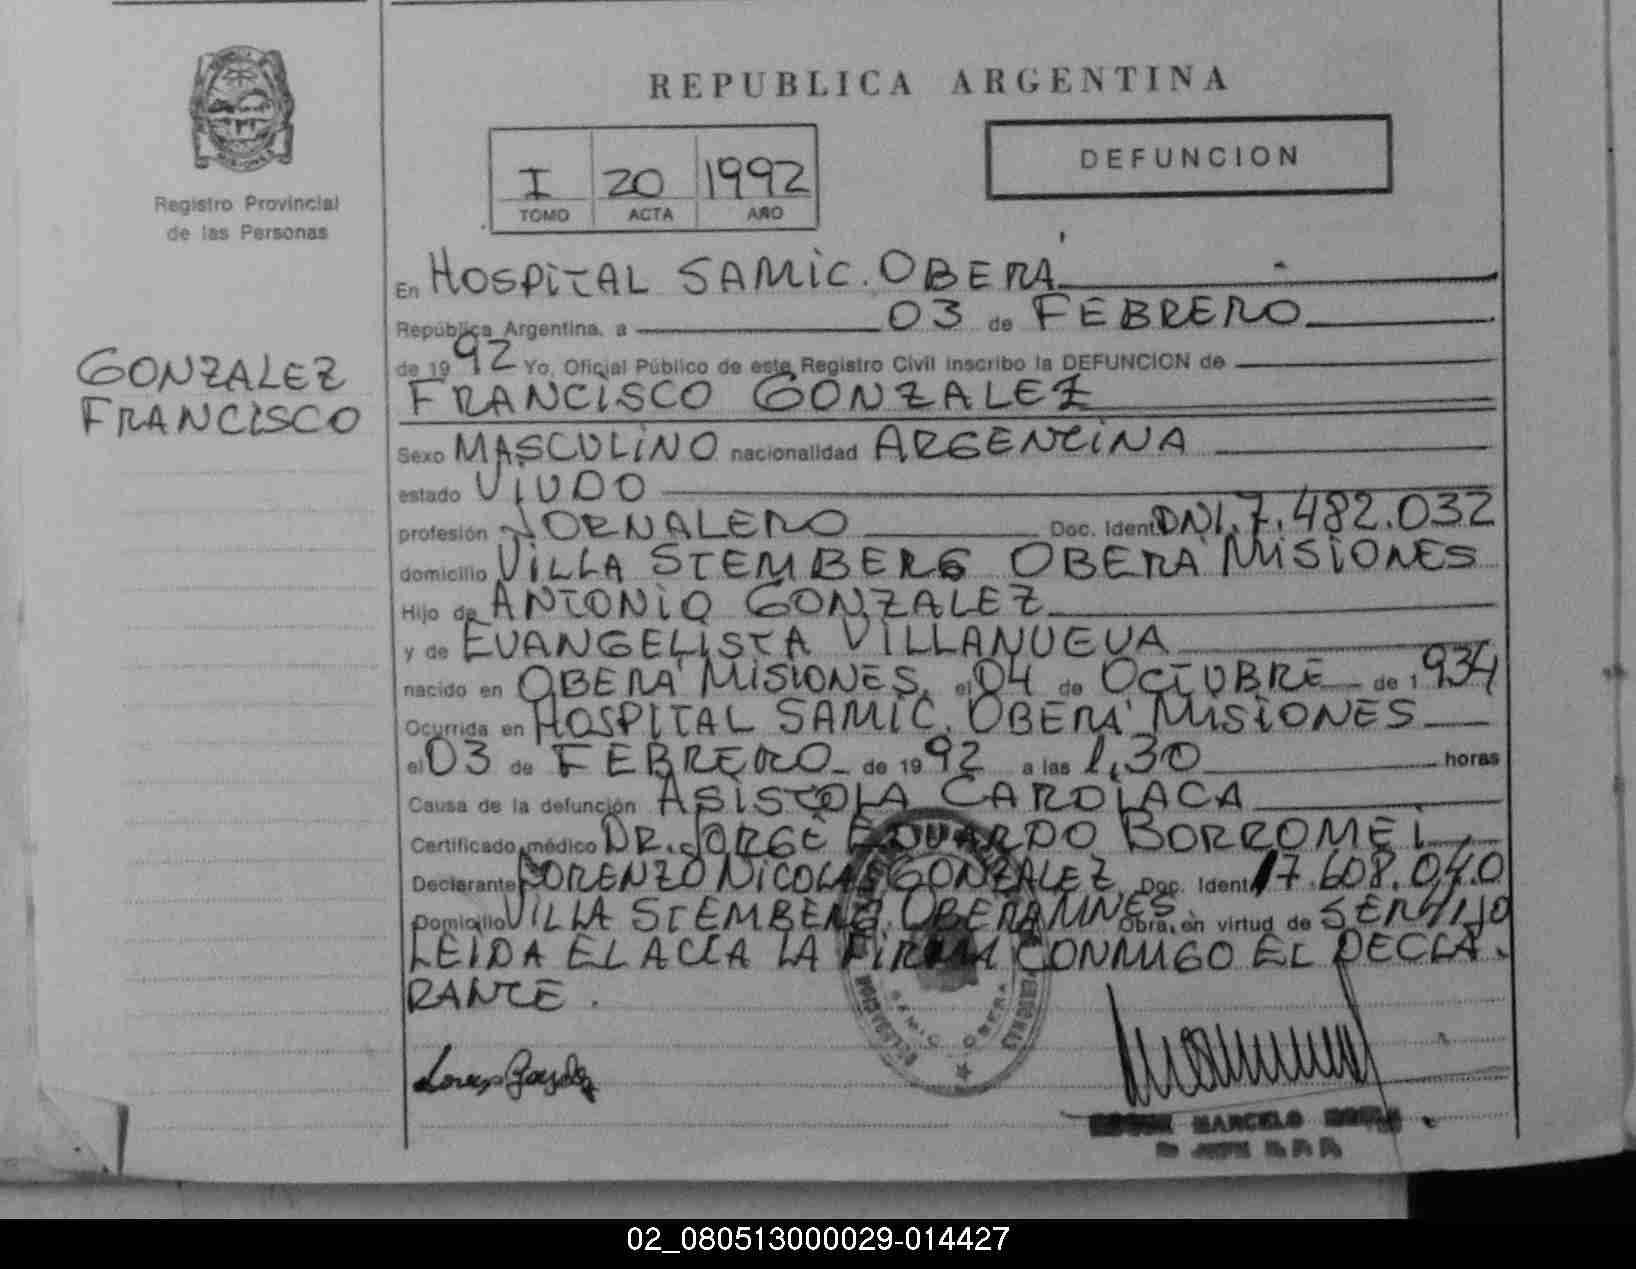 REPUBLICA ARGENTINA
DEFUNCION
I 20 1992
TOMO ACTA AÑO
MISIONES
Registro Provincial
de las Personas
GONZALEZ
FRANCISCO
En HOSPITAL SAMIC. OBERA
República Argentina, a 03 de FEBRERO
de 1992 Yo, Oficial Público de este Registro Civil inscribo la DEFUNCION de
FRANCISCO GONZALEZ
Sexo MASCULINO nacionalidad ARGENTINA
estado VIUDO
profesión JORNALERO Doc. Ident. DNI. 7.482.032
domicilio VILLA STEMBERG OBERA MISIONES
Hijo de ANTONIO GONZALEZ
y de EVANGELISTA VILLANUEVA
nacido en OBERA MISIONES, el 04 de OCTUBRE de 1934
Ocurrida en HOSPITAL SAMIC. OBERA MISIONES
el 03 de FEBRERO de 1992 a las 1,30 horas
Causa de la defunción ASISTOLA CARDIACA
Certificado médico DR. JORGE EDUARDO BORROMEI
Declarante LORENZO NICOLAS GONZALEZ Doc. Ident. 17.608.040
Domicilio VILLA STEMBERG. OBERA MNES. Obra, en virtud de SER HIJO
LEIDA EL ACTA LA FIRMA CONMIGO EL DECLA-
RANTE.
SAMIC OBERA
MARCELO
02_080513000029-014427